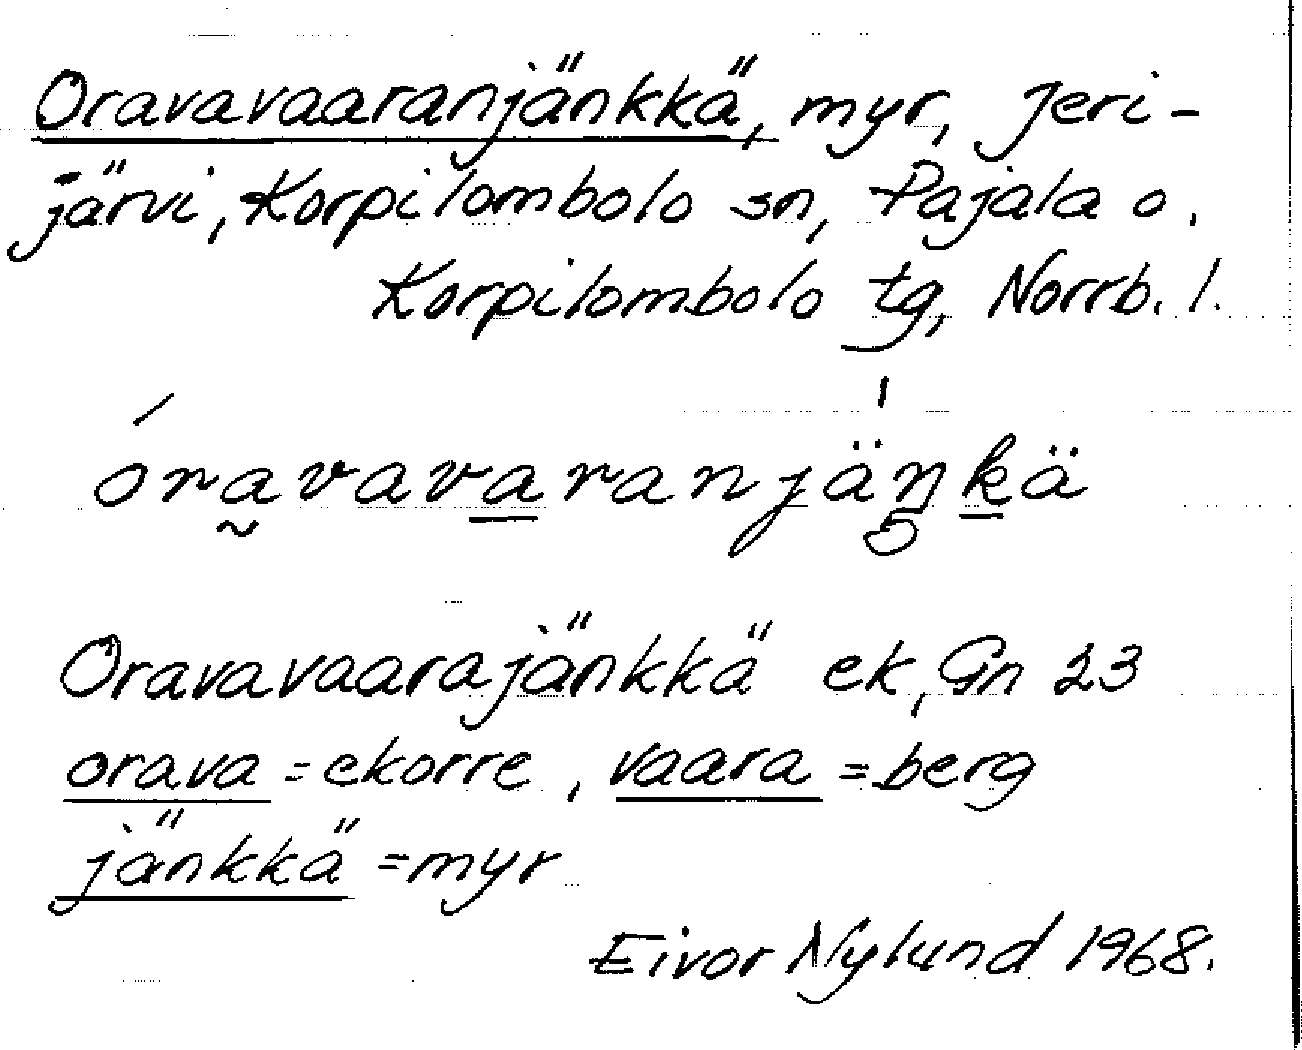 Oravavaaranjänkkä, myr, Jeri-
järvi, Korpilombolo sn, Pajala o.
Korpilombolo tg, Norrb. l.
óra̰vava̱ranjäŋḵä
Oravavaarajänkkä ek, Gn 23
orava = ekorre, vaara = berg
jänkkä = myr
Eivor Nylund 1968.